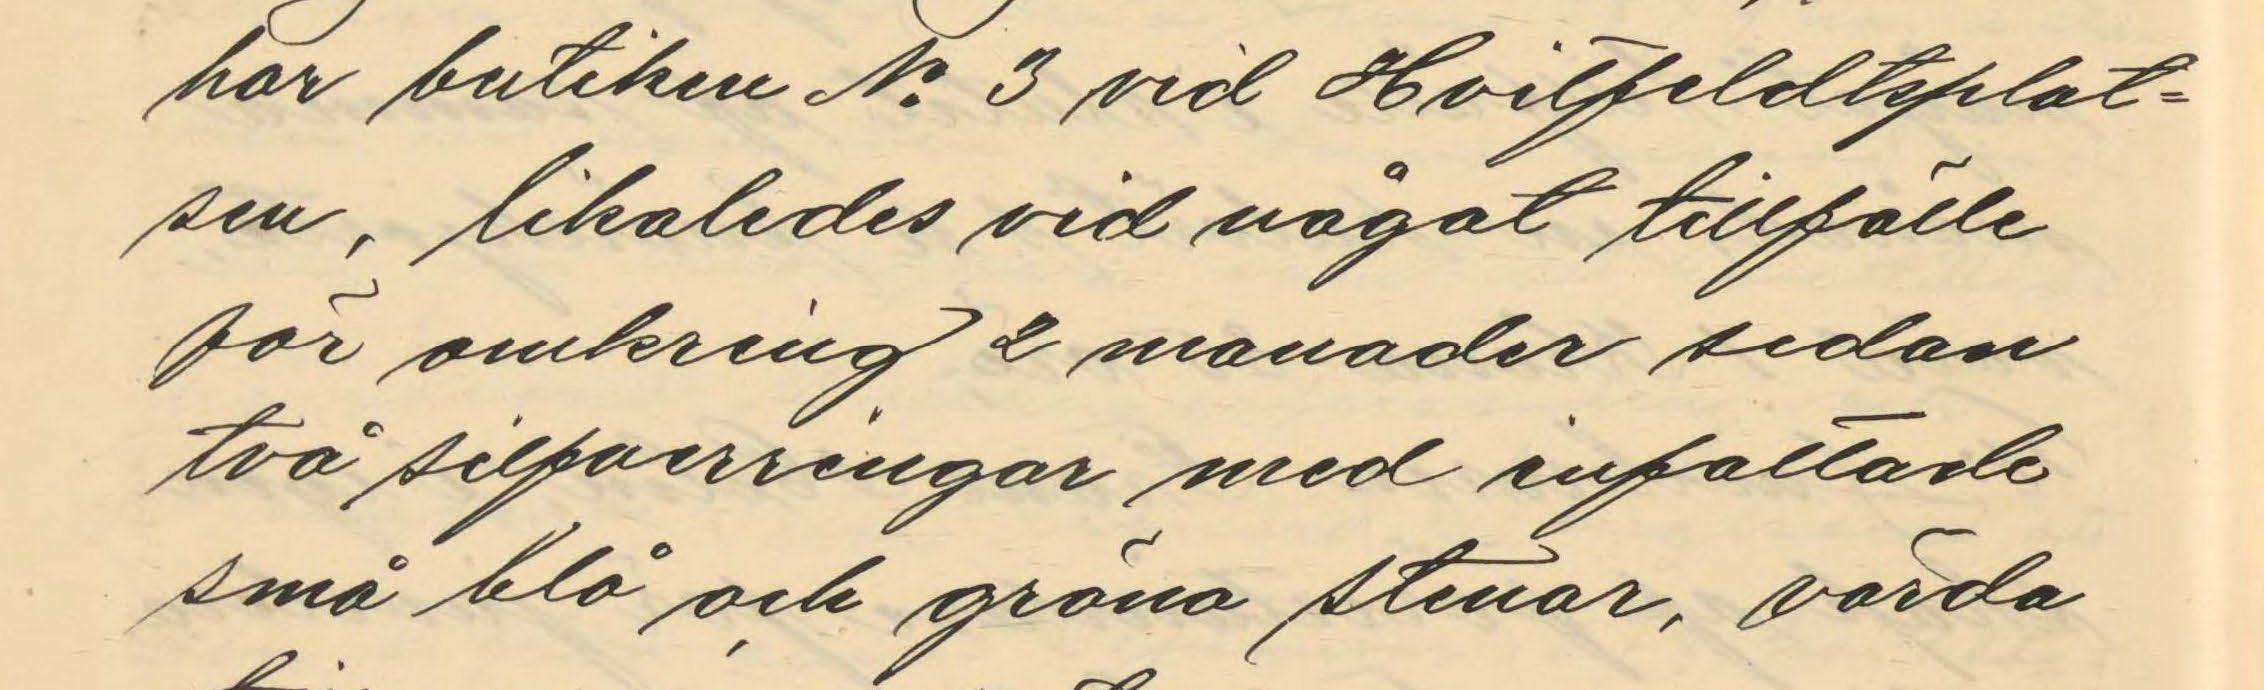 har butiken No. 3 vid Hvitfeldtsplat=
sen, likaledes vid något tillfälle
för omkring 2 manader sedan
två silfverringar med infattade
små blå och gröna stenar, värda